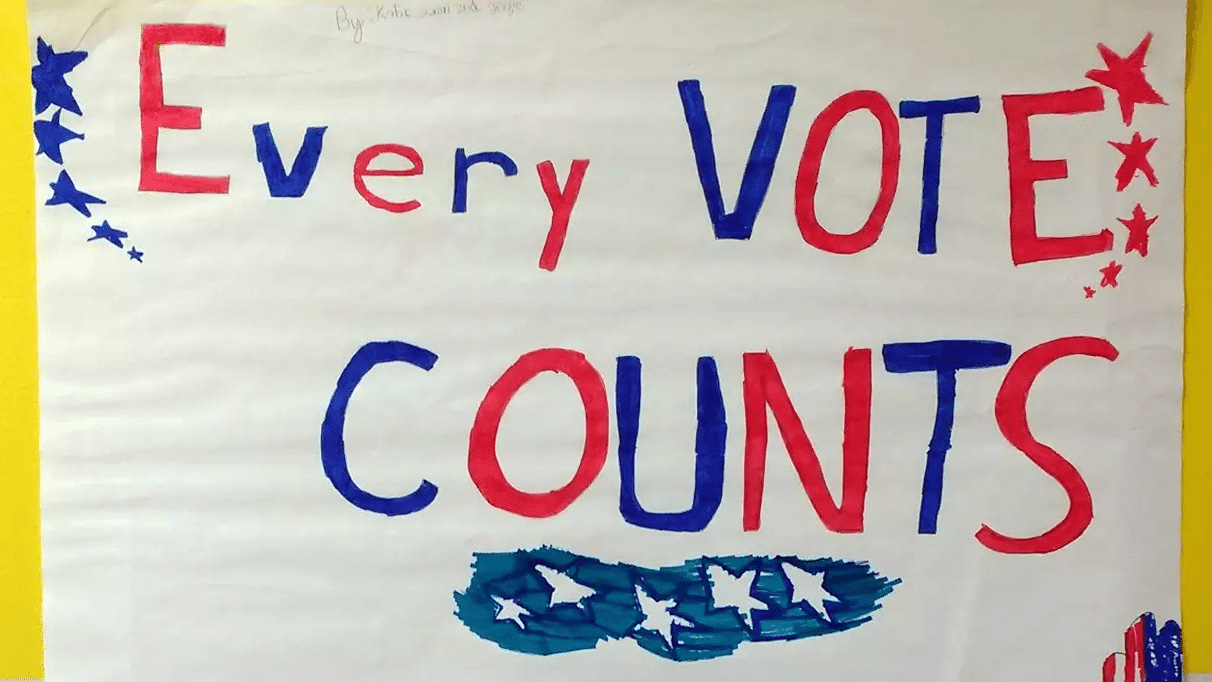 By: Katie and
Every VOTE
COUNTS